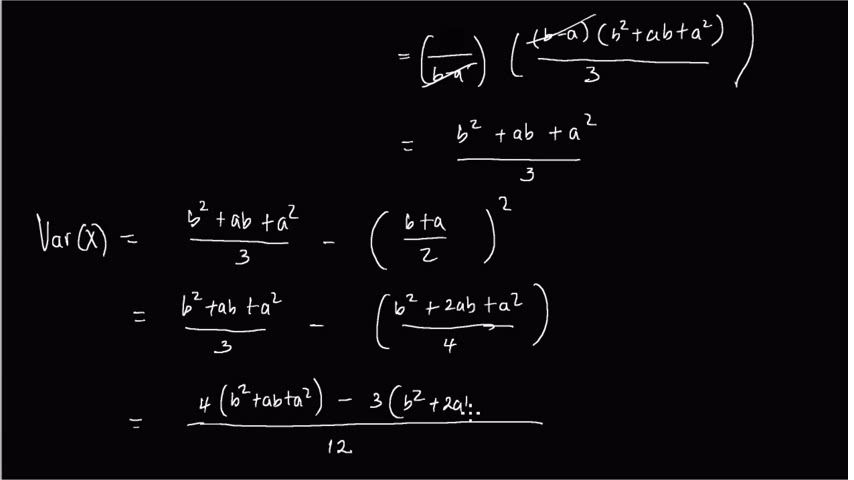 = (1/(b-a)) ((b-a)(b²+ab+a²)/3)
= (b²+ab+a²)/3
Var(X) = (b²+ab+a²)/3 - ((b+a)/2)²
= (b²+ab+a²)/3 - ((b²+2ab+a²)/4)
= (4(b²+ab+a²) - 3(b²+2a)/12